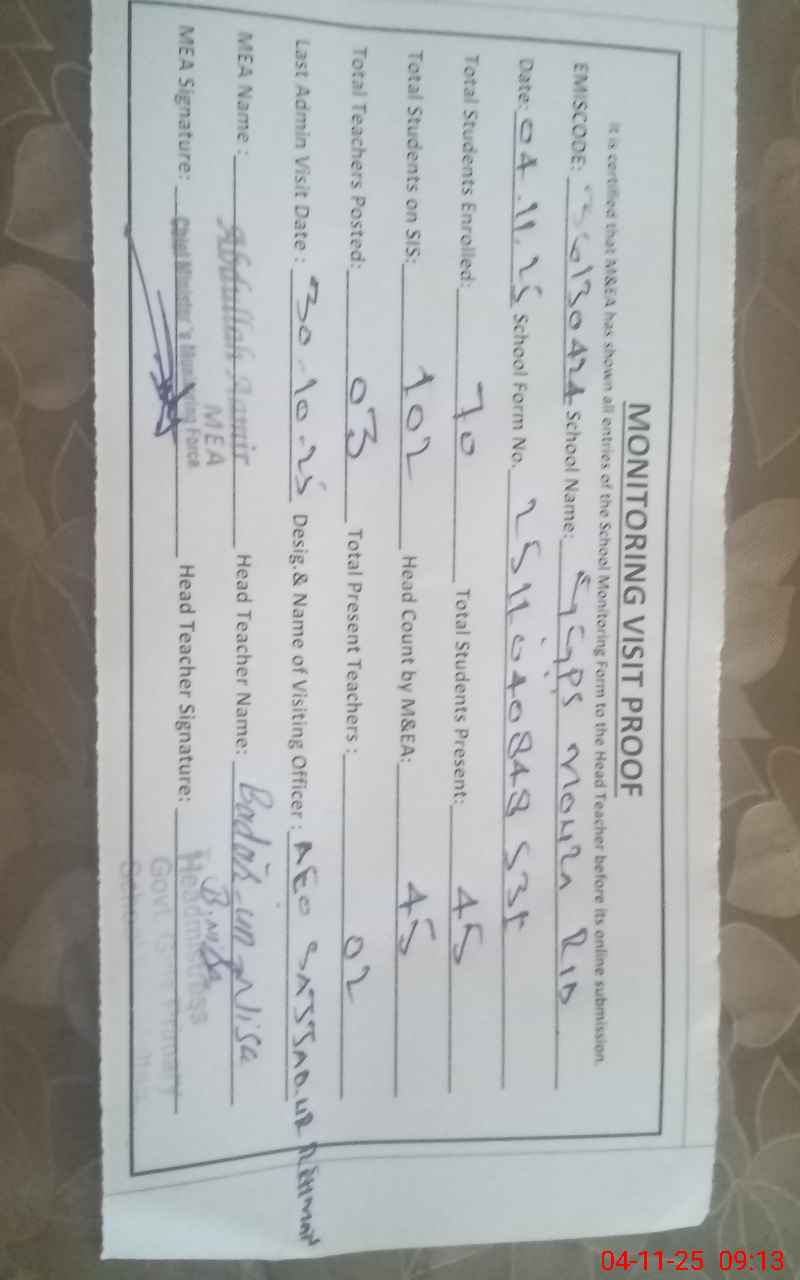 MONITORING VISIT PROOF
It is certified that M&EA has shown all entries of the School Monitoring Form to the Head Teacher before its online submission.
EMISCODE: 36130424 School Name: GGPS
Date: 04.11.25 School Form No. 2511040848
Total Students Enrolled: 70 Total Students Present: 45
Total Students on SIS: 102 Head Count by M&EA: 45
Total Teachers Posted: 03 Total Present Teachers : 02
Last Admin Visit Date : 30-10-25 Desig.& Name of Visiting Officer : AEO
MEA Name : Abdullah Aamir Head Teacher Name: Badar-un-Nisa
MEA
MEA Signature: Chief Minister's Monitoring Force Head Teacher Signature:
Headmistress
Govt. Girls Primary
04-11-25 09:13